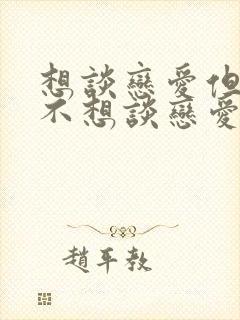 想談戀愛但
不想談戀愛
趙平教